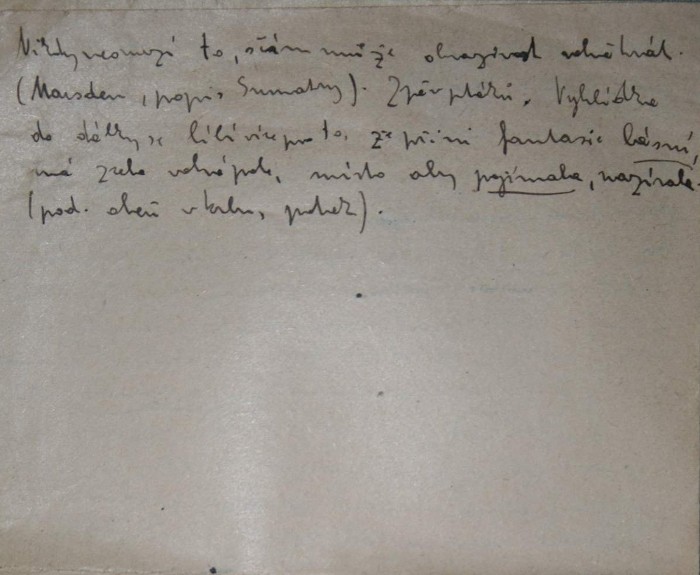 Vždy neomrzí to, s čím může obrazivost volně hrát.
(Marsden, popis Sumatry). Zpěv ptáků. Vyhlídka
do dálky se líbí více proto, že při ní fantasie básní,
má zcela volné pole, místo aby pojímala, nazírala.
(pod. oheň v krbu, potok).